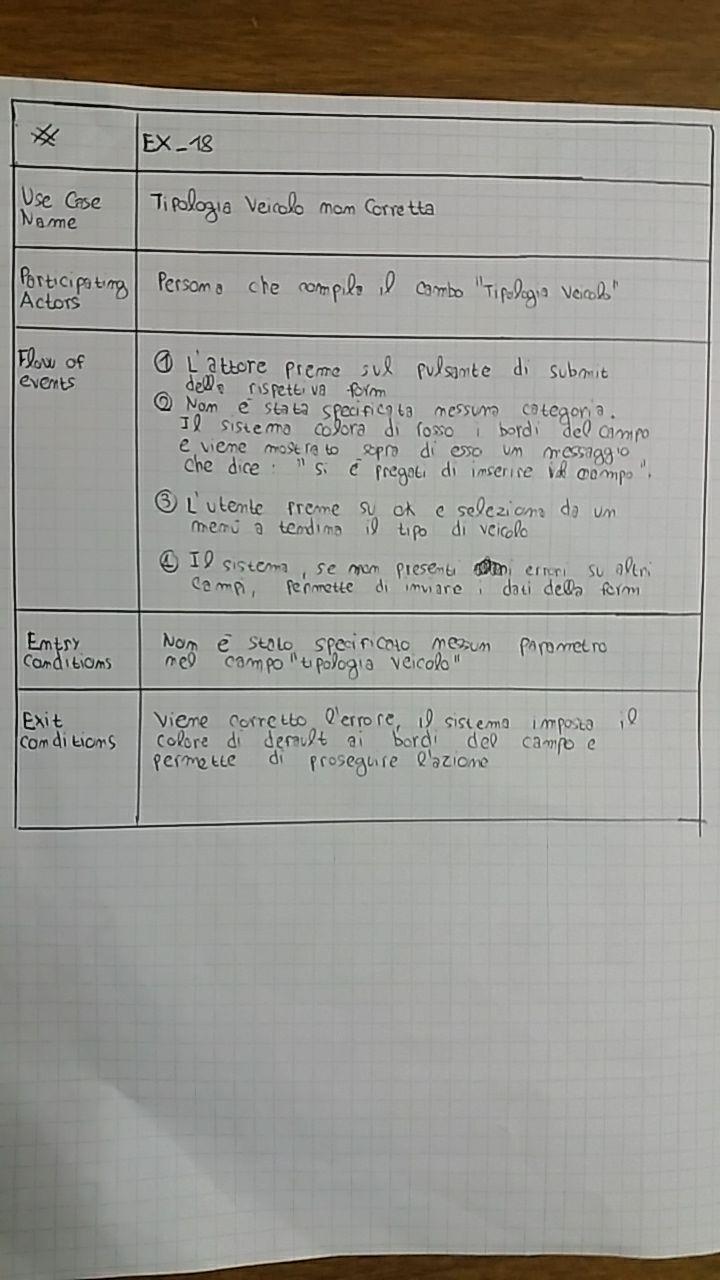 # EX_18
Use Case
Name
Tipologia Veicolo non Corretta
Participating
Actors
Persona che compila il cambo "Tipologia Veicolo"
Flow of
events
① L'attore preme sul pulsante di submit
della rispettiva form
② Non è stata specificata nessuna categoria.
Il sistema colora di rosso i bordi del campo
e viene mostrato sopra di esso un messaggio
che dice: "si è pregati di inserire il campo".
③ L'utente preme su ok e seleziona da un
menù a tendina il tipo di veicolo
④ Il sistema, se non presenti errori su altri
campi, permette di inviare i dati della form
Entry
conditions
Non è stato specificato nessun parametro
nel campo "tipologia veicolo"
Exit
conditions
Viene corretto l'errore, il sistema imposta il
colore di default ai bordi del campo e
permette di proseguire l'azione